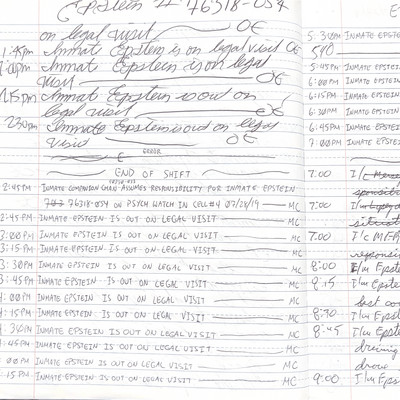 Epstein # 76318-054
on legal visit OE
1:45pm Inmate Epstein is on legal visit OE
2:00pm Inmate Epstein is on legal
visit OE
15pm Inmat Epstein is out on
legal visit OE
230pm Inmate Epstein is out on legal
visit OE
ERROR
END OF SHIFT
2:45PM INMATE COMPANION CHAN ASSUMES RESPONSIBILITY FOR INMATE EPSTEIN
76318-054 ON PSYCH WATCH IN CELL#4 07/28/19 MC
2:45PM INMATE EPSTEIN IS OUT ON LEGAL VISIT MC
3:00PM INMATE EPSTEIN IS OUT ON LEGAL VISIT MC
3:15PM INMATE EPSTEIN IS OUT ON LEGAL VISIT MC
3:30PM INMATE EPSTEIN IS OUT ON LEGAL VISIT MC
3:45PM INMATE EPSTEIN IS OUT ON LEGAL VISIT MC
4:00PM INMATE EPSTEIN IS OUT ON LEGAL VISIT MC
4:15PM INMATE EPSTEIN IS OUT ON LEGAL VISIT MC
4:30PM INMATE EPSTEIN IS OUT ON LEGAL VISIT MC
4:45PM INMATE EPSTEIN IS OUT ON LEGAL VISIT MC
:00PM INMATE EPSTEIN IS OUT ON LEGAL VISIT MC
:15PM INMATE EPSTEIN IS OUT ON LEGAL VISIT MC
5:30PM INMATE EPSTEIN
5:45PM INMATE EPSTEI
6:00PM INMATE EPSTEI
6:15PM INMATE EPSTEI
6:30PM INMATE EPSTEI
6:45PM INMATE EPSTEIN
7:00PM INMATE EPSTEIN
7:00 I/c
7:00
7:00 I/c
8:00 I/m Epste
8:15 I/m Epst
8:30 I/m Epst
8:45 I/m Epst
9:00 I/m Eps